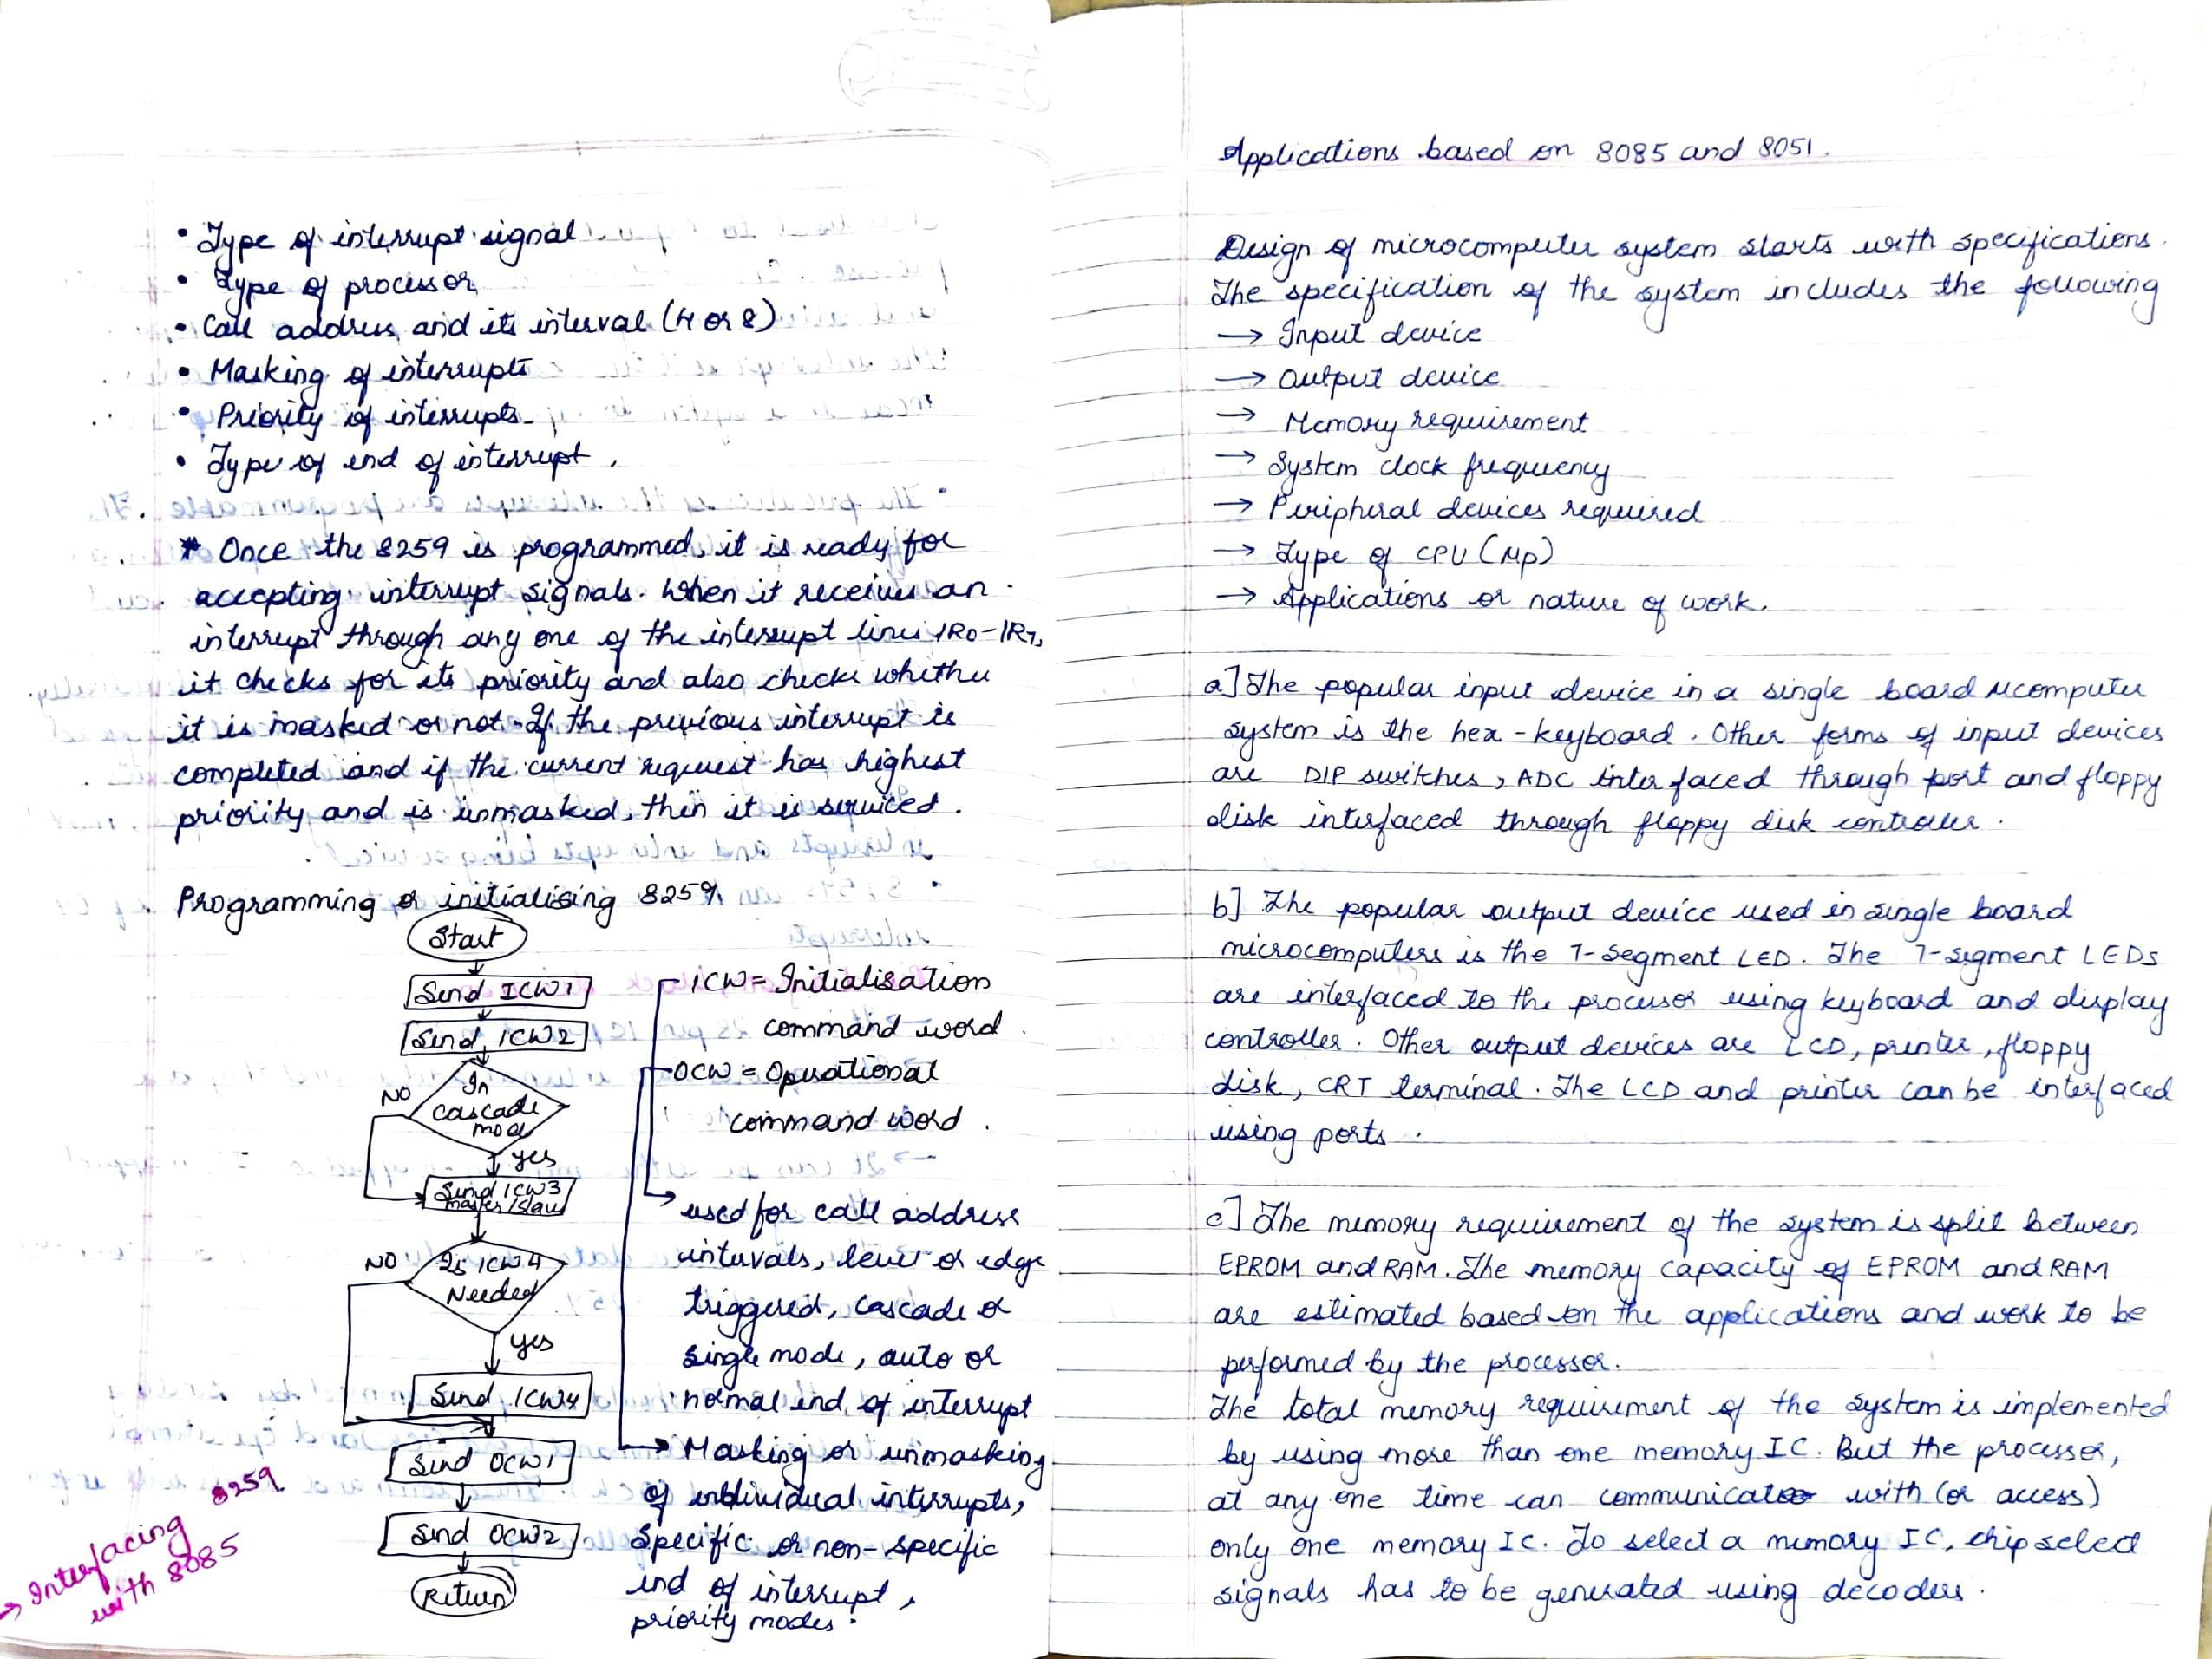 • Type of interrupt signal
• Type of processor
• Call address and its interval (4 or 8)
• Masking of interrupts
• Priority of interrupts.
• Type of end of interrupt.
* Once the 8259 is programmed, it is ready for
accepting interrupt signals. When it receives an
interrupt through any one of the interrupt lines IR0-IR7,
it checks for its priority and also checks whether
it is masked or not. If the previous interrupt is
completed and if the current request has highest
priority and is unmasked, then it is serviced.
Programming or initialising 8259.
Start
Send ICW1
Send ICW2
In
cascade
mode
NO
yes
Send ICW3
master/slave
Is ICW4
Needed
NO
yes
Send ICW4
Send OCW1
Send OCW2
Return
ICW = Initialisation
command word.
OCW = Operational
command word.
used for call address
intervals, level or edge
triggered, cascade or
single mode, auto or
normal end of interrupt
Masking or unmasking
of individual interrupts,
specific or non-specific
end of interrupt,
priority modes.
→ Interfacing 8259
with 8085
Applications based on 8085 and 8051.
Design of microcomputer system starts with specifications.
The specification of the system includes the following
→ Input device
→ Output device
→ Memory requirement
→ System clock frequency
→ Peripheral devices required
→ Type of CPU (Mp)
→ Applications or nature of work.
a] The popular input device in a single board Mcomputer
system is the hex-keyboard. Other forms of input devices
are DIP switches, ADC interfaced through port and floppy
disk interfaced through floppy disk controller.
b] The popular output device used in single board
microcomputers is the 7-segment LED. The 7-segment LEDs
are interfaced to the processor using keyboard and display
controller. Other output devices are LCD, printer, floppy
disk, CRT terminal. The LCD and printer can be interfaced
using ports.
c] The memory requirement of the system is split between
EPROM and RAM. The memory capacity of EPROM and RAM
are estimated based on the applications and work to be
performed by the processor.
The total memory requirement of the system is implemented
by using more than one memory IC. But the processor,
at any one time can communicate with (or access)
only one memory IC. To select a memory IC, chip select
signals has to be generated using decoders.